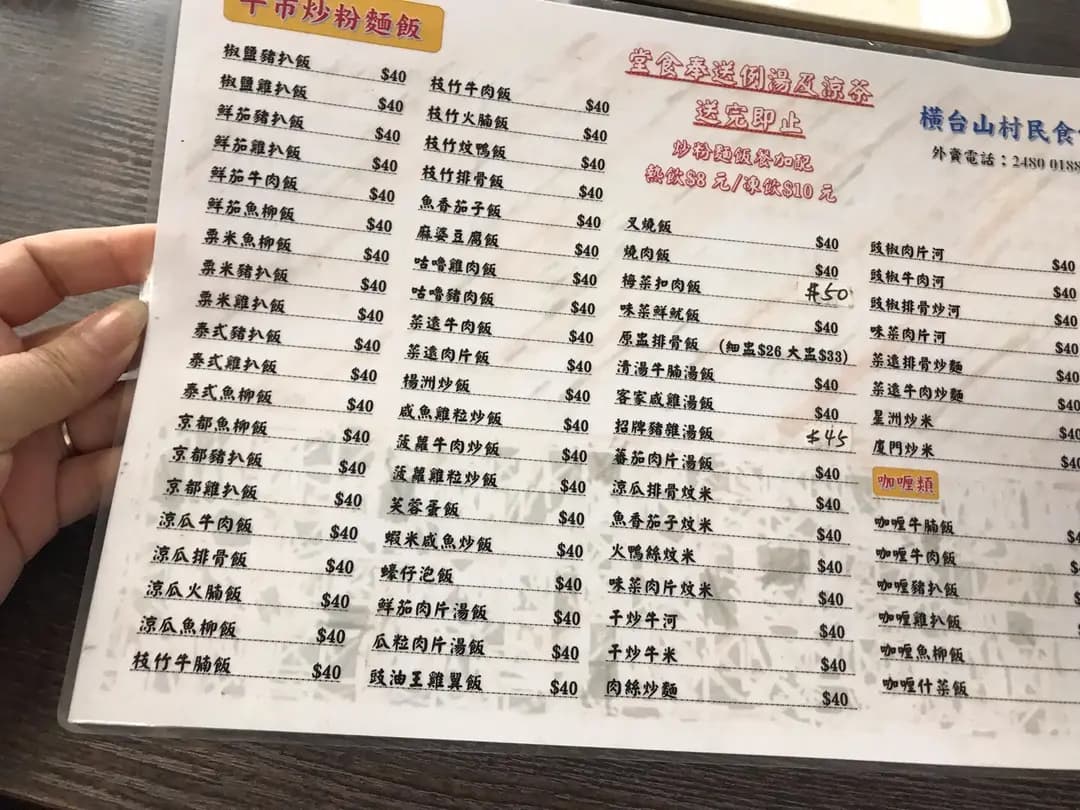 午市炒粉麵飯
椒鹽豬扒飯 $40
椒鹽雞扒飯 $40
鮮茄豬扒飯 $40
鮮茄雞扒飯 $40
鮮茄牛肉飯 $40
鮮茄魚柳飯 $40
粟米魚柳飯 $40
粟米豬扒飯 $40
粟米雞扒飯 $40
泰式豬扒飯 $40
泰式雞扒飯 $40
泰式魚柳飯 $40
京都魚柳飯 $40
京都豬扒飯 $40
京都雞扒飯 $40
涼瓜牛肉飯 $40
涼瓜排骨飯 $40
涼瓜火腩飯 $40
涼瓜魚柳飯 $40
枝竹牛腩飯 $40
枝竹牛肉飯 $40
枝竹火腩飯 $40
枝竹炆鴨飯 $40
枝竹排骨飯 $40
魚香茄子飯 $40
麻婆豆腐飯 $40
咕嚕雞肉飯 $40
咕嚕豬肉飯 $40
菜遠牛肉飯 $40
菜遠肉片飯 $40
揚洲炒飯 $40
咸魚雞粒炒飯 $40
菠蘿牛肉炒飯 $40
菠蘿雞粒炒飯 $40
芙蓉蛋飯 $40
蝦米咸魚炒飯 $40
蠔仔泡飯 $40
鮮茄肉片湯飯 $40
瓜粒肉片湯飯 $40
豉油王雞翼飯 $40
堂食奉送例湯及涼茶
送完即止
炒粉麵飯餐加配
熱飲$8 元/凍飲$10 元
叉燒飯 $40
燒肉飯 $40
梅菜扣肉飯 $50
味菜鮮魷飯 $40
原盅排骨飯 (細盅$26 大盅$33)
清湯牛腩湯飯 $40
客家咸雞湯飯 $40
招牌豬雜湯飯 $45
蕃茄肉片湯飯 $40
涼瓜排骨炆米 $40
魚香茄子炆米 $40
火鴨絲炆米 $40
味菜肉片炆米 $40
干炒牛河 $40
干炒牛米 $40
肉絲炒麵 $40
橫台山村民食
外賣電話：2480 0188
豉椒肉片河 $40
豉椒牛肉河 $40
豉椒排骨炒河 $40
味菜肉片河 $40
菜遠排骨炒麵 $40
菜遠牛肉炒麵 $40
星洲炒米 $40
廈門炒米 $40
咖喱類
咖喱牛腩飯 $4
咖喱牛肉飯 $
咖喱豬扒飯
咖喱雞扒飯
咖喱魚柳飯
咖喱什菜飯